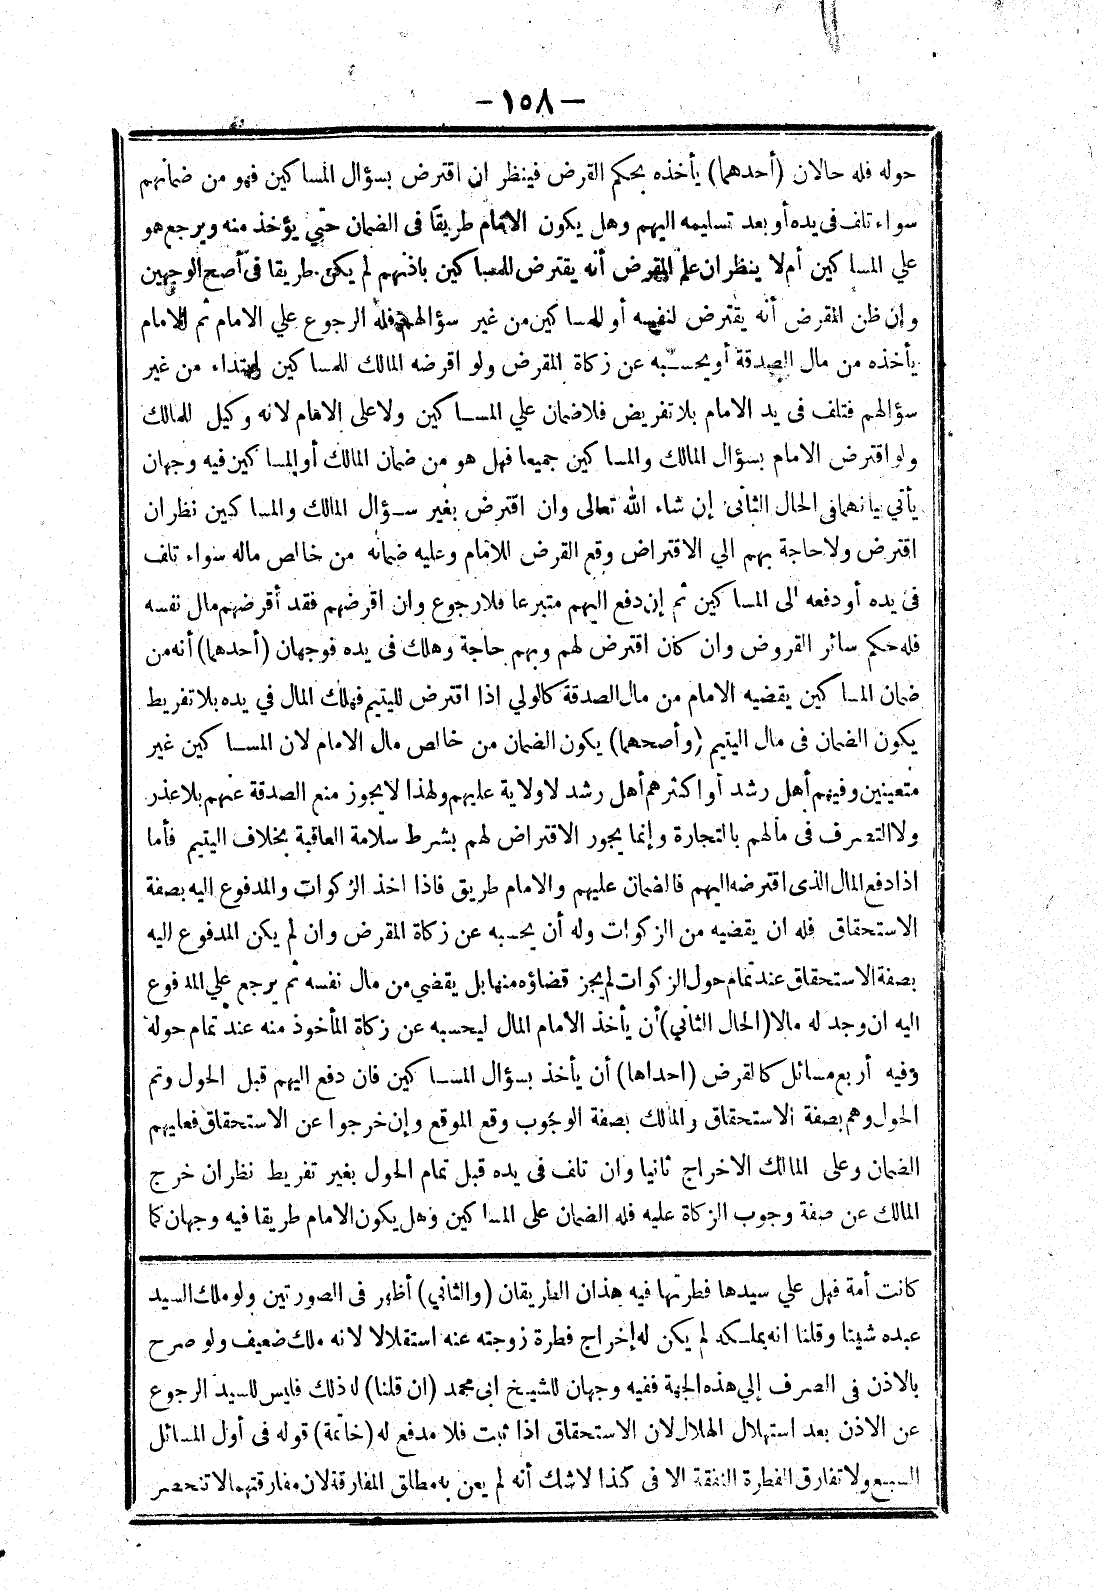 — ١٥٨ —
حوله فله حالان (أحدهما) يأخذه بحكم القرض فينظر ان اقترض بسؤال المساكين فهو من ضمانهم
سواء تلف فى يده أو بعد تسليمه اليهم وهل يكون الامام طريقا فى الضمان حتي يؤخذ منه ويرجع هو
علي المساكين أم لا ينظر ان علم المقرض أنه يقترض للمساكين باذنهم لم يكن طريقا فى أصح الوجهين
وإن ظن المقرض أنه يقترض لنفسه أو للمساكين من غير سؤالهم فله الرجوع علي الامام ثم الامام
يأخذه من مال الصدقة أو يحسبه عن زكاة المقرض ولو اقرضه المالك للمساكين ابتداء من غير
سؤالهم فتلف فى يد الامام بلا تفريض فلا ضمان علي المساكين ولا على الامام لانه وكيل للمالك
ولو اقترض الامام بسؤال المالك والمساكين جميعا فهل هو من ضمان المالك أو المساكين فيه وجهان
يأتي بيانهما فى الحال الثانى إن شاء الله تعالى وان اقترض بغير سؤال المالك والمساكين نظر ان
اقترض ولا حاجة بهم الي الاقتراض وقع القرض للامام وعليه ضمانه من خالص ماله سواء تلف
فى يده أو دفعه الى المساكين ثم إن دفع اليهم متبرعا فلا رجوع وان اقرضهم فقد أقرضهم مال نفسه
فله حكم سائر القروض وان كان اقترض لهم وبهم حاجة وهلك فى يده فوجهان (أحدهما) أنه من
ضمان المساكين يقضيه الامام من مال الصدقة كالولي اذا اقترض لليتيم فهلك المال في يده بلا تفريط
يكون الضمان فى مال اليتيم (وأصحهما) يكون الضمان من خالص مال الامام لان المساكين غير
متعينين وفيهم أهل رشد أو اكثرهم أهل رشد لا ولاية عليهم ولهذا لا يجوز منع الصدقة عنهم بلا عذر
ولا التصرف فى مالهم بالتجارة وإنما يجوز الاقتراض لهم بشرط سلامة العاقبة بخلاف اليتيم فأما
اذا دفع المال الذى اقترضه اليهم فالضمان عليهم والامام طريق فاذا اخذ الزكوات والمدفوع اليه بصفة
الاستحقاق فله ان يقضيه من الزكوات وله أن يحسبه عن زكاة المقرض وان لم يكن المدفوع اليه
بصفة الاستحقاق عند تمام حول الزكوات لم يجز قضاؤه منها بل يقضي من مال نفسه ثم يرجع علي المدفوع
اليه ان وجد له مالا (الحال الثاني) أن يأخذ الامام المال ليحسبه عن زكاة المأخوذ منه عند تمام حوله
وفيه أربع مسائل كالقرض (احداها) أن يأخذ بسؤال المساكين فان دفع اليهم قبل الحول وتم
الحول وهم بصفة الاستحقاق والمالك بصفة الوجوب وقع الموقع وإن خرجوا عن الاستحقاق فعليهم
الضمان وعلى المالك الاخراج ثانيا وان تلف فى يده قبل تمام الحول بغير تفريط نظر ان خرج
المالك عن صفة وجوب الزكاة عليه فله الضمان على المساكين وهل يكون الامام طريقا فيه وجهان كما
كانت أمة فهل علي سيدها فطرتها فيه هذان الطريقان (والثاني) أظهر فى الصورتين ولو ملك السيد
عبده شيئا وقلنا انه يملكه لم يكن له إخراج فطرة زوجته عنه استقلالا لانه ملك ضعيف ولو صرح
بالاذن فى الصرف إلي هذه الجهة ففيه وجهان للشيخ ابى محمد (ان قلنا) له ذلك فليس للسيد الرجوع
عن الاذن بعد استهلال الهلال لان الاستحقاق اذا ثبت فلا مدفع له (خاتمة) قوله فى أول المسائل
السبع ولا تفارق الفطرة النفقة الا فى كذا لا شك أنه لم يعن به مطلق المفارقة لان مفارقتهما لا تنحصر